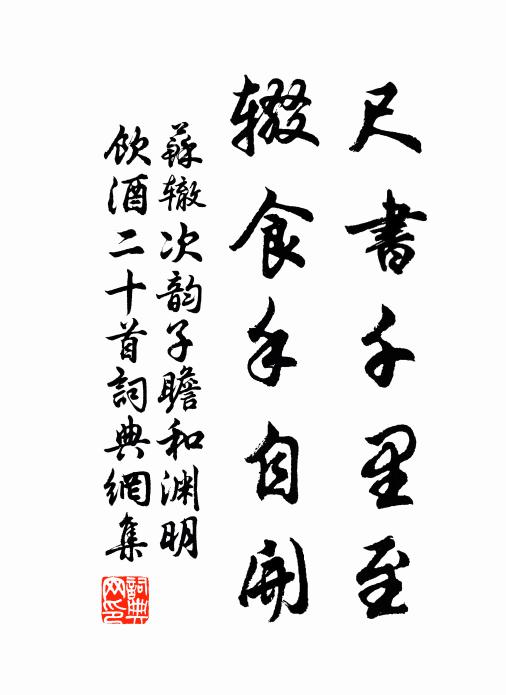 尺書千里至
辍食手自開
蘇辙次韵子瞻和渊明
飲酒二十首詞典網集
詞典
网印